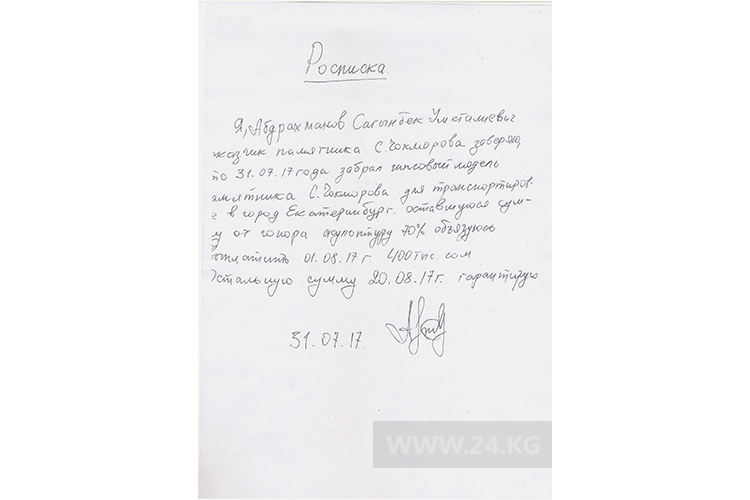 Росписка
Я, Абдрахманов Сагынбек Умсталиевич
казчик памятника С. Чокморова заверяю,
то 31.07.17 года забрал гипсовый модель
амятника С. Чокморова для транспортиров-
е в город Екатеринбург. оставшуюся сум-
у от гонора скульптуру 70% обязуюсь
оплатить 01.08.17 г 400 тыс. сом.
остальную сумму 20.08.17г. гарантирую
31.07.17.
WWW.24.KG